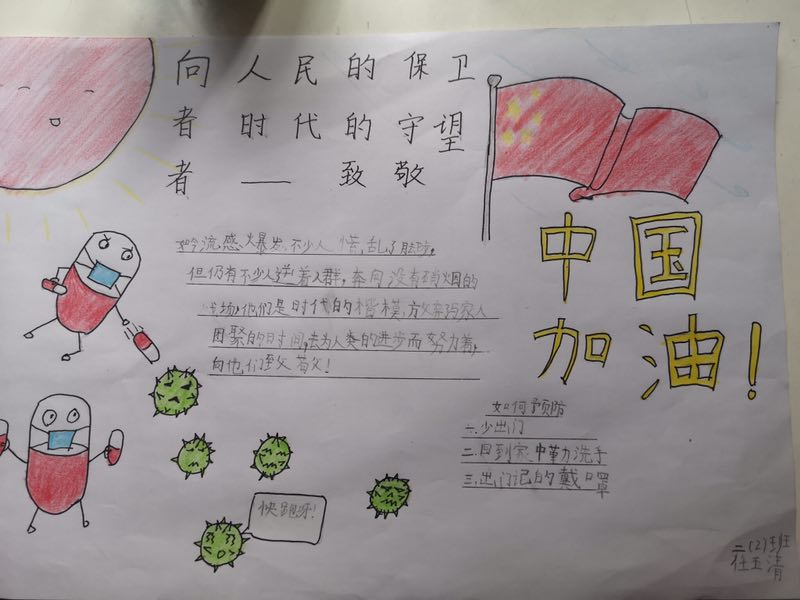 向人民的保卫
者时代的守望
者——致敬
中国
加油！
吟流感爆发，不少人慌乱了脚步，
但仍有不少人逆着人群，奔向没有硝烟的
战场，他们是时代的楷模，放弃与家人
团聚的时间，去为人类的进步而努力着，
向他们致敬！
如何预防
一.少出门
二.回到家中勤洗手
三.出门记的戴口罩
快跑呀！
二(2)班